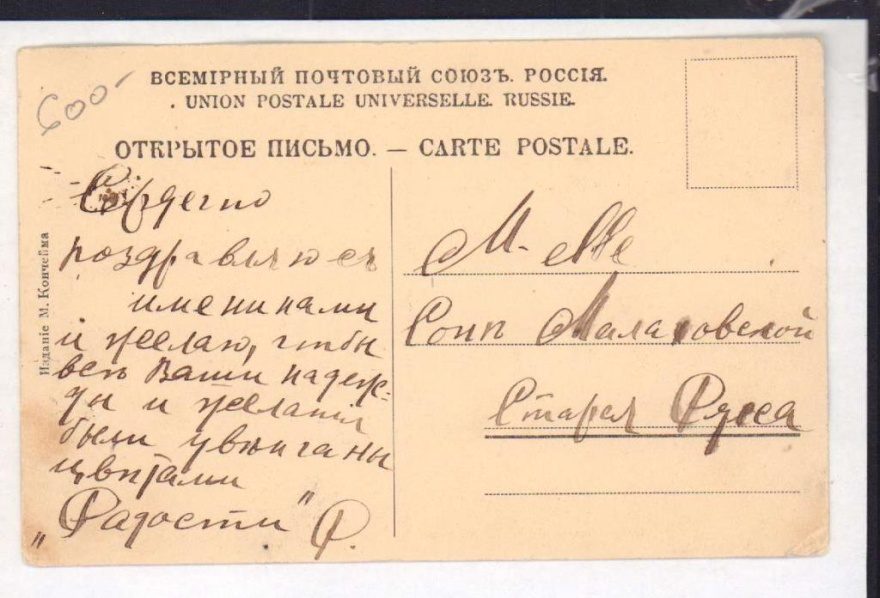 600-
ВСЕМІРНЫЙ ПОЧТОВЫЙ СОЮЗЪ. РОССІЯ.
UNION POSTALE UNIVERSELLE. RUSSIE.
ОТКРЫТОЕ ПИСЬМО. — CARTE POSTALE.
Изданіе М. Кончейма
Сердечно
поздравляю съ
именинами
и желаю, чтобы
всѣ Ваши надеж-
ды и желанія
были увѣнчаны
цвѣтами
„Радости" Ф.
M-elle
Сонѣ Малаховской
Старая Русса